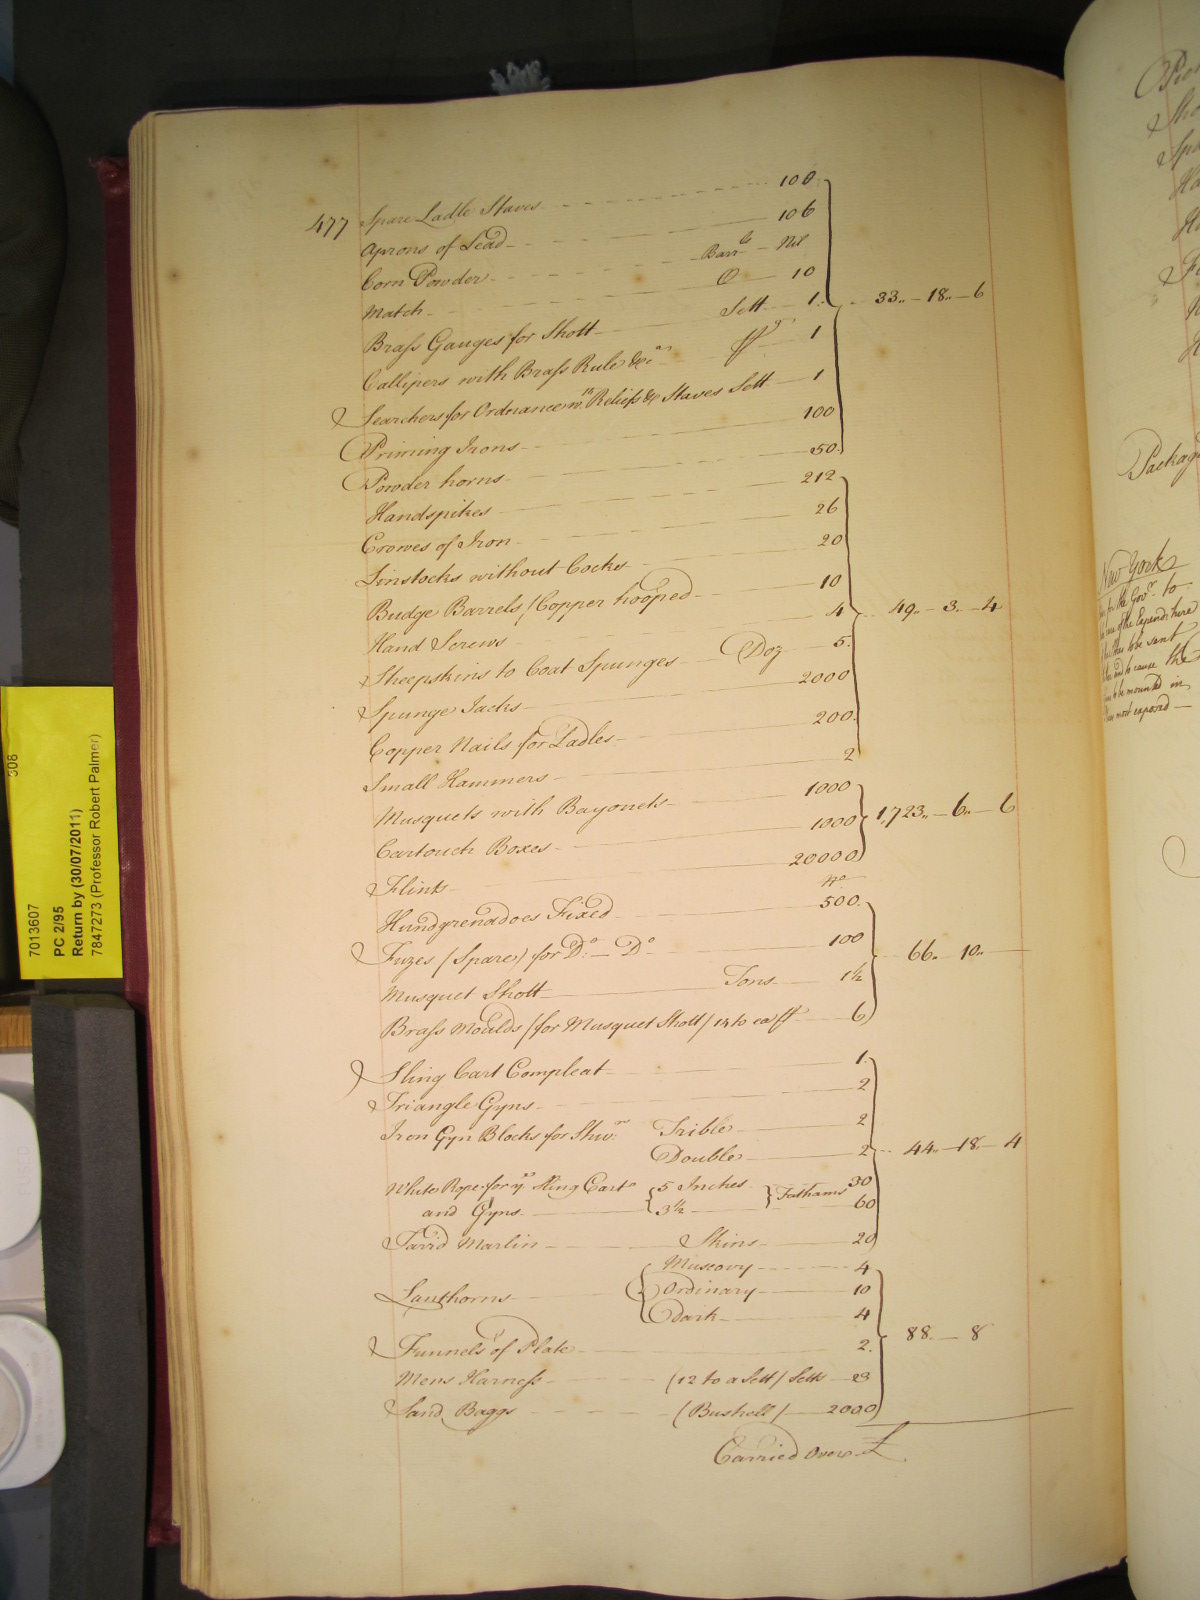 477 Spare Ladle Staves 100
Aprons of Lead 106
Corn Powder Barrls Nil
Match C 10
Brass Gauges for Shott Sett 1 33.. 18.. 6
Callipers with Brass Rule &ca. pr 1
Searchers for Ordnance wth. Reliefs & Staves Sett 1
Priming Irons 100
Powder horns 50
Handspikes 212
Crowes of Iron 26
Linstocks without Cocks 20
Budge Barrels (Copper hooped 10
Hand Screws 4 49.. 3.. 4
Sheepskins to Coat Spunges Doz 5
Spunge Tacks 2000
Copper Nails for Ladles 200
Small Hammers 2
Musquets with Bayonets 1000
Cartouch Boxes 1000 1,723.. 6.. 6
Flints 20000
No.
Handgrenadoes Fixed 500
Fuzes (Spare) for Do. Do. 100 66.. 10..
Musquet Shott Tons 1½
Brass Moulds (for Musquet Shott) 14 to ea pr 6
Sling Cart Compleat 1
Triangle Gyns 2
Iron Gyn Blocks for Shivrs. Trible 2
Double 2 44.. 18.. 4
White Rope for ye. Sling Cart 5 Inches Fathams 30
and Gyns 3½ 60
Tarr'd Marlin Skins 20
Muscovy 4
Lanthorns Ordinary 10
Dark 4
Funnels of Plate 2 88.. 8
Mens Harness (12 to a Sett) Setts
Sand Baggs (Bushell) 2000
Carried Over £
Package
New York
for the Govr. to
of the Expenditure
to be sent
and to cause the
to be mounted in
most exposed
308
7013607
PC 2/95
Return by (30/07/2011)
7847273 (Professor Robert Palmer)